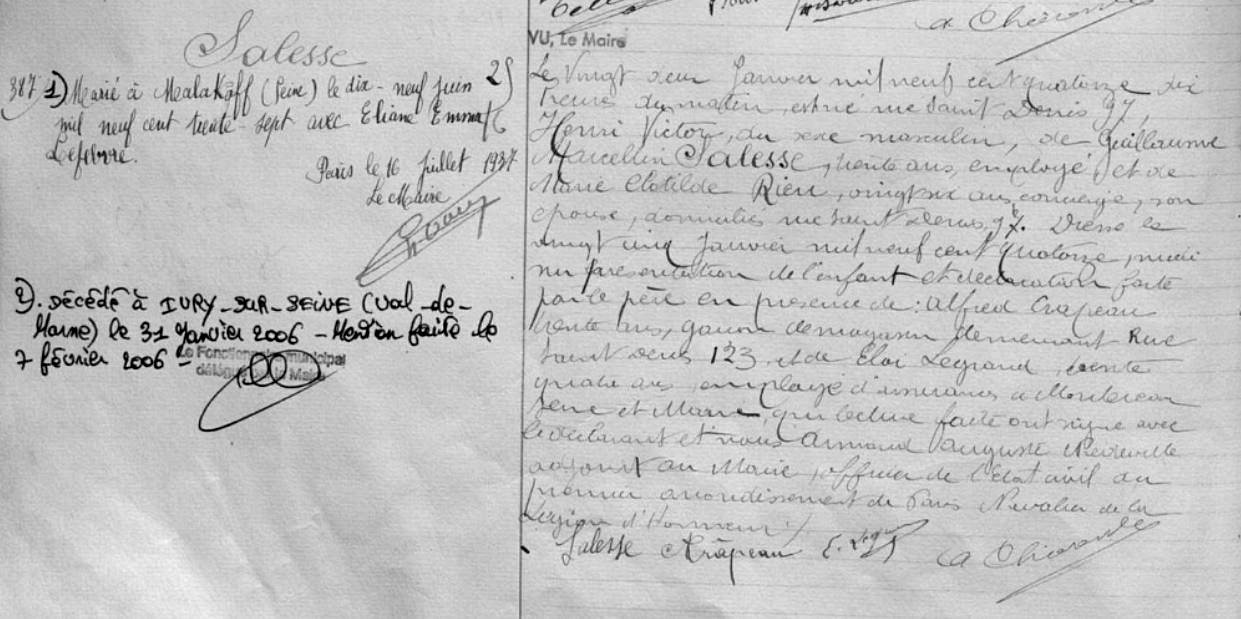 Salesse
387
1) Marié à Malakoff (Seine) le dix-neuf juin
mil neuf cent trente-sept avec Eliane Emma
Lefebvre.
Paris le 16 Juillet 1937
Le Maire
2). Décédé à IVRY-SUR-SEINE (Val-de-
Marne) le 31 Janvier 2006 - Mention faite le
7 février 2006 -
Le Fonctionnaire municipal
délégué par le Maire
a Chérioux
VU, Le Maire
Le Vingt deux Janvier mil neuf cent quatorze dix
heures du matin, est né rue Saint Denis 97,
Henri Victor, du sexe masculin, de Guillaume
Marcellin Salesse, trente ans, employé et de
Marie Clotilde Rieu, vingt six ans, concierge, son
épouse, domiciliés rue Saint Denis, 97. Dressé le
vingt cinq Janvier mil neuf cent quatorze, midi
sur présentation de l'enfant et déclaration faite
par le père en présence de : Alfred Crapeau
trente ans, garçon de magasin demeurant Rue
Saint Denis 123, et de Eloi Legrand, trente
quatre ans, employé d'assurances à Montereau
Seine et Marne, qui lecture faite ont signé avec
le déclarant et nous Armand Auguste
adjoint au Maire, officier de l'Etat civil du
premier arrondissement de Paris Chevalier de la
Légion d'Honneur ./.
Salesse Crapeau E. Legrand